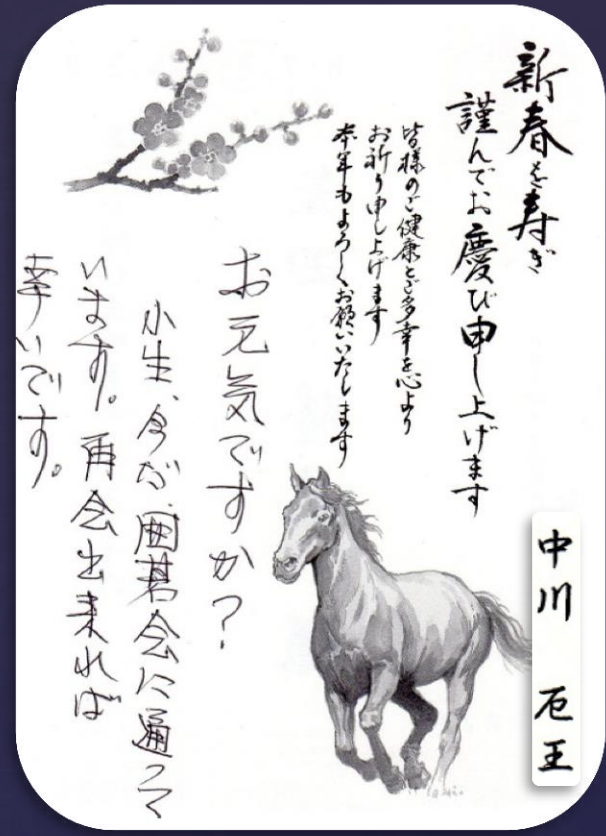 新春を寿ぎ
謹んでお慶び申し上げます
皆様のご健康とご多幸を心より
お祈り申し上げます
本年もよろしくお願いいたします
お元気ですか?
小生、今だ囲碁会に通って
います。再会出来れば
幸いです。
中川 石王